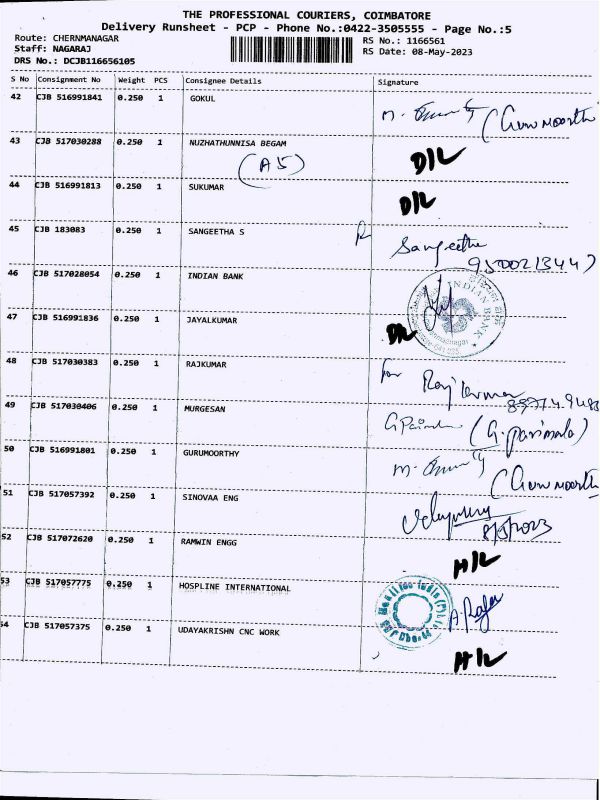 THE PROFESSIONAL COURIERS, COIMBATORE
Delivery Runsheet - PCP - Phone No.:0422-3505555 - Page No.:5
Route: CHERNMANAGAR RS No.: 1166561
Staff: NAGARAJ RS Date: 08-May-2023
DRS No.: DCJB116656105
S No Consignment No Weight PCS Consignee Details Signature
42 CJB 516991841 0.250 1 GOKUL
M. (Gurumoorthi
43 CJB 517030288 0.250 1 NUZHATHUNNISA BEGAM
(A5) D/L
44 CJB 516991813 0.250 1 SUKUMAR D/L
45 CJB 183083 0.250 1 SANGEETHA S Sangeetha
9500213447
46 CJB 517028054 0.250 1 INDIAN BANK INDIAN BANK
47 CJB 516991836 0.250 1 JAYALKUMAR D/L
48 CJB 517030383 0.250 1 RAJKUMAR for Rajkumar
49 CJB 517030406 0.250 1 MURGESAN (G. parimala)
50 CJB 516991801 0.250 1 GURUMOORTHY M.
(Gurumoorthi
51 CJB 517057392 0.250 1 SINOVAA ENG
8/5/2023
52 CJB 517072620 0.250 1 RAMWIN ENGG H/L
53 CJB 517057775 0.250 1 HOSPLINE INTERNATIONAL A. Raja
54 CJB 517057375 0.250 1 UDAYAKRISHN CNC WORK H/L